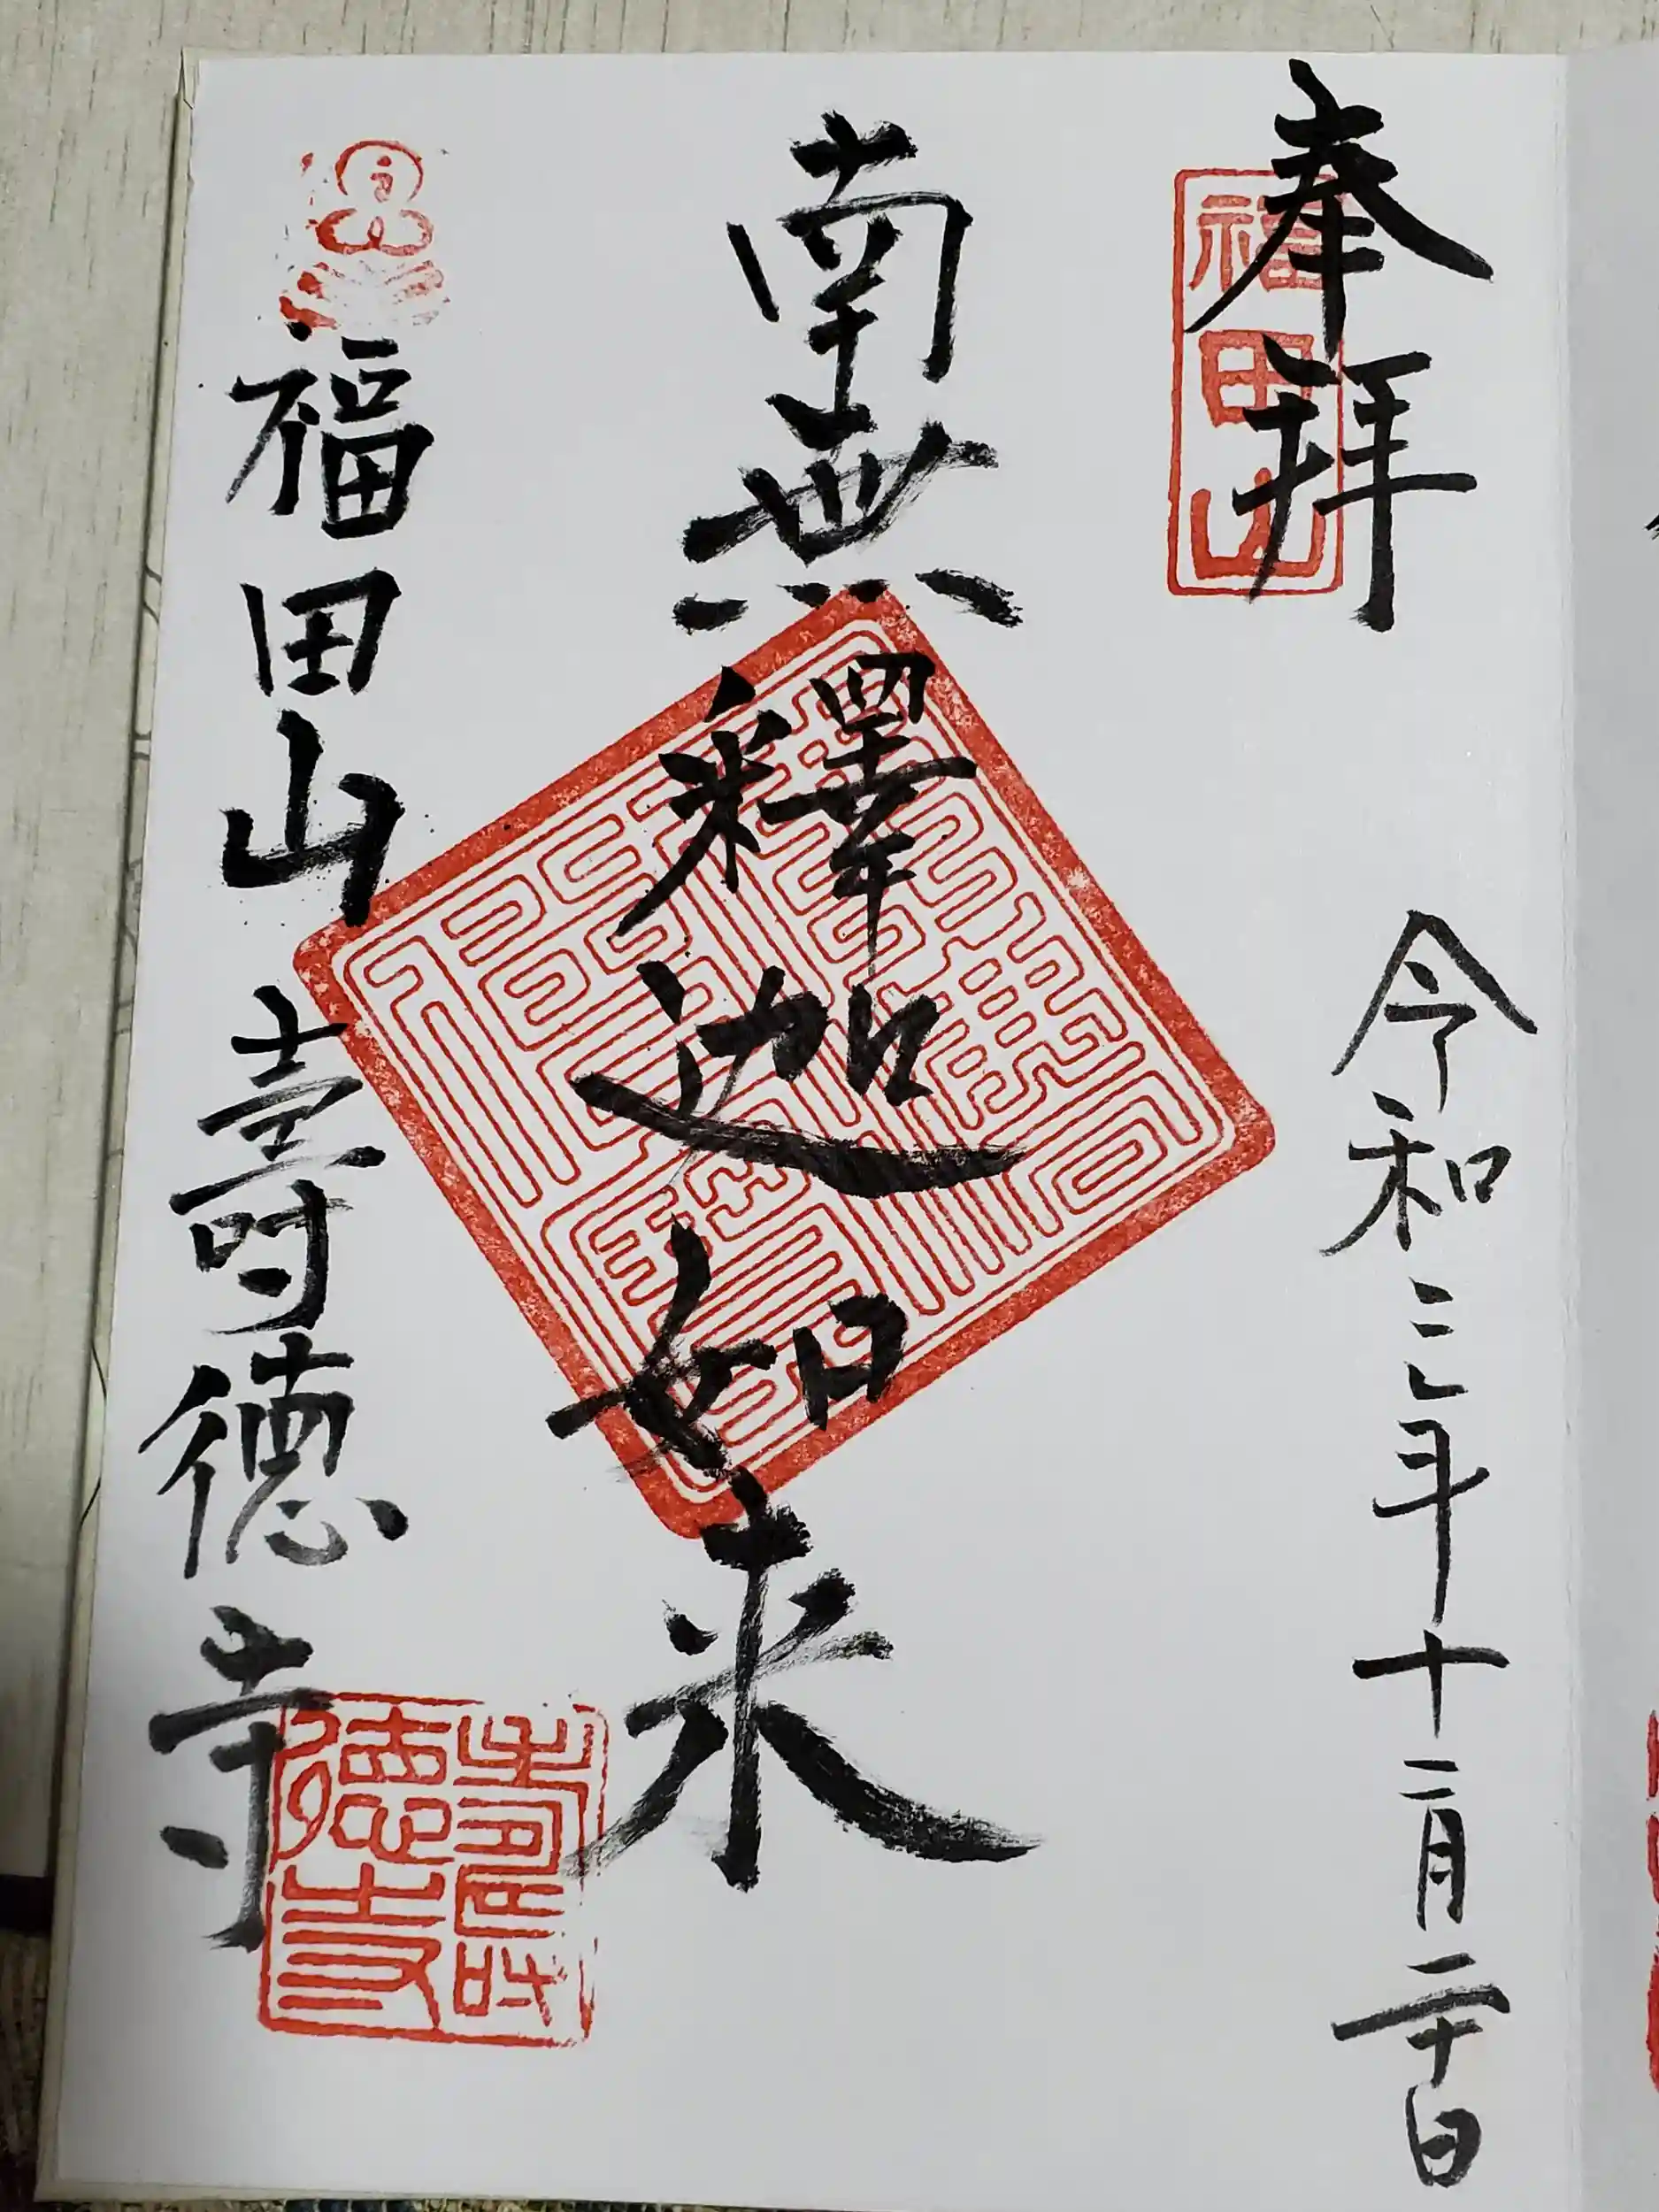 奉拝
福田山
令和三年十二月二十日
南無釋迦如来
福田山 壽徳寺
壽徳寺